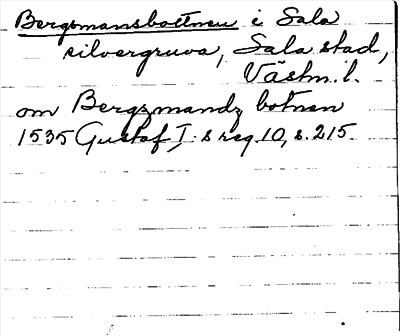 Bergsmansbottnen i Sala
silvergruva, Sala stad,
Västm. l.
om Bergzmandz botnen
1535 Gustaf I. s reg. 10, s. 215.